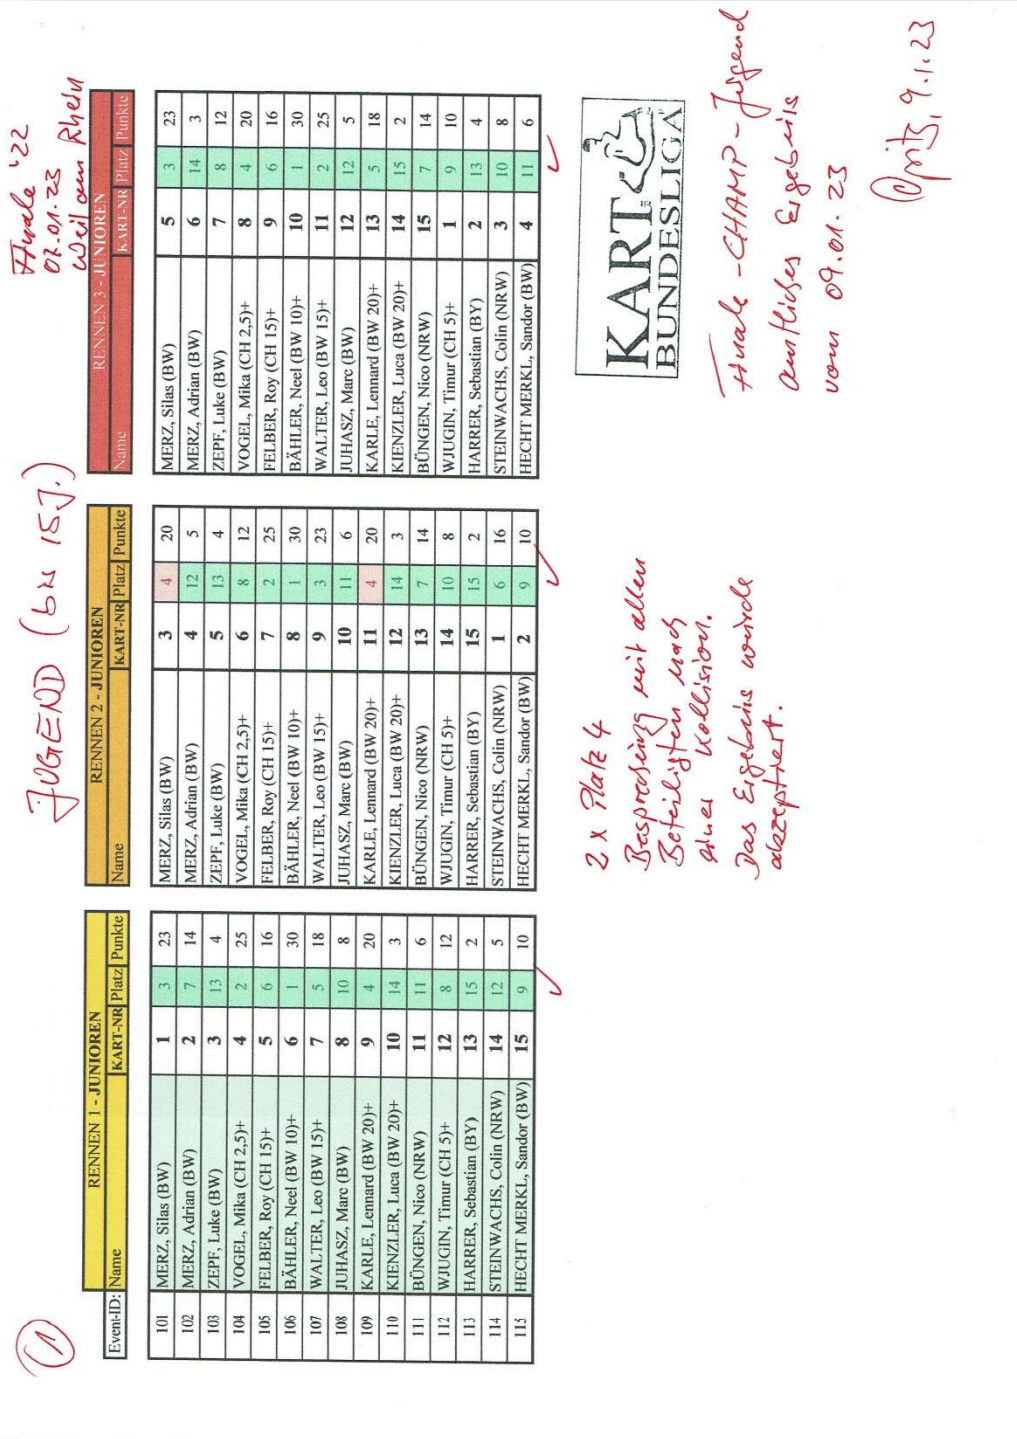 1
JUGEND (bis 15J.)
Finale '22
07.01.23
Weil am Rhein
RENNEN 1 - JUNIOREN
Event-ID: Name KART-NR Platz Punkte
101 MERZ, Silas (BW) 1 3 23
102 MERZ, Adrian (BW) 2 7 14
103 ZEPF, Luke (BW) 3 13 4
104 VOGEL, Mika (CH 2,5)+ 4 2 25
105 FELBER, Roy (CH 15)+ 5 6 16
106 BÄHLER, Neel (BW 10)+ 6 1 30
107 WALTER, Leo (BW 15)+ 7 5 18
108 JUHASZ, Marc (BW) 8 10 8
109 KARLE, Lennard (BW 20)+ 9 4 20
110 KIENZLER, Luca (BW 20)+ 10 14 3
111 BÜNGEN, Nico (NRW) 11 11 6
112 WJUGIN, Timur (CH 5)+ 12 8 12
113 HARRER, Sebastian (BY) 13 15 2
114 STEINWACHS, Colin (NRW) 14 12 5
115 HECHT MERKL, Sandor (BW) 15 9 10
RENNEN 2 - JUNIOREN
Name KART-NR Platz Punkte
MERZ, Silas (BW) 3 4 20
MERZ, Adrian (BW) 4 12 5
ZEPF, Luke (BW) 5 13 4
VOGEL, Mika (CH 2,5)+ 6 8 12
FELBER, Roy (CH 15)+ 7 2 25
BÄHLER, Neel (BW 10)+ 8 1 30
WALTER, Leo (BW 15)+ 9 3 23
JUHASZ, Marc (BW) 10 11 6
KARLE, Lennard (BW 20)+ 11 4 20
KIENZLER, Luca (BW 20)+ 12 14 3
BÜNGEN, Nico (NRW) 13 7 14
WJUGIN, Timur (CH 5)+ 14 10 8
HARRER, Sebastian (BY) 15 15 2
STEINWACHS, Colin (NRW) 1 6 16
HECHT MERKL, Sandor (BW) 2 9 10
RENNEN 3 - JUNIOREN
Name KART-NR Platz Punkte
MERZ, Silas (BW) 5 3 23
MERZ, Adrian (BW) 6 14 3
ZEPF, Luke (BW) 7 8 12
VOGEL, Mika (CH 2,5)+ 8 4 20
FELBER, Roy (CH 15)+ 9 6 16
BÄHLER, Neel (BW 10)+ 10 1 30
WALTER, Leo (BW 15)+ 11 2 25
JUHASZ, Marc (BW) 12 12 5
KARLE, Lennard (BW 20)+ 13 5 18
KIENZLER, Luca (BW 20)+ 14 15 2
BÜNGEN, Nico (NRW) 15 7 14
WJUGIN, Timur (CH 5)+ 1 9 10
HARRER, Sebastian (BY) 2 13 4
STEINWACHS, Colin (NRW) 3 10 8
HECHT MERKL, Sandor (BW) 4 11 6
2 x Platz 4
Besprechung mit allen
Beteiligten nach
einer Kollision.
Das Ergebnis wurde
akzeptiert.
KART
BUNDESLIGA
Finale - CHAMP - Jugend
amtliches Ergebnis
vom 09.01.23
9.1.23